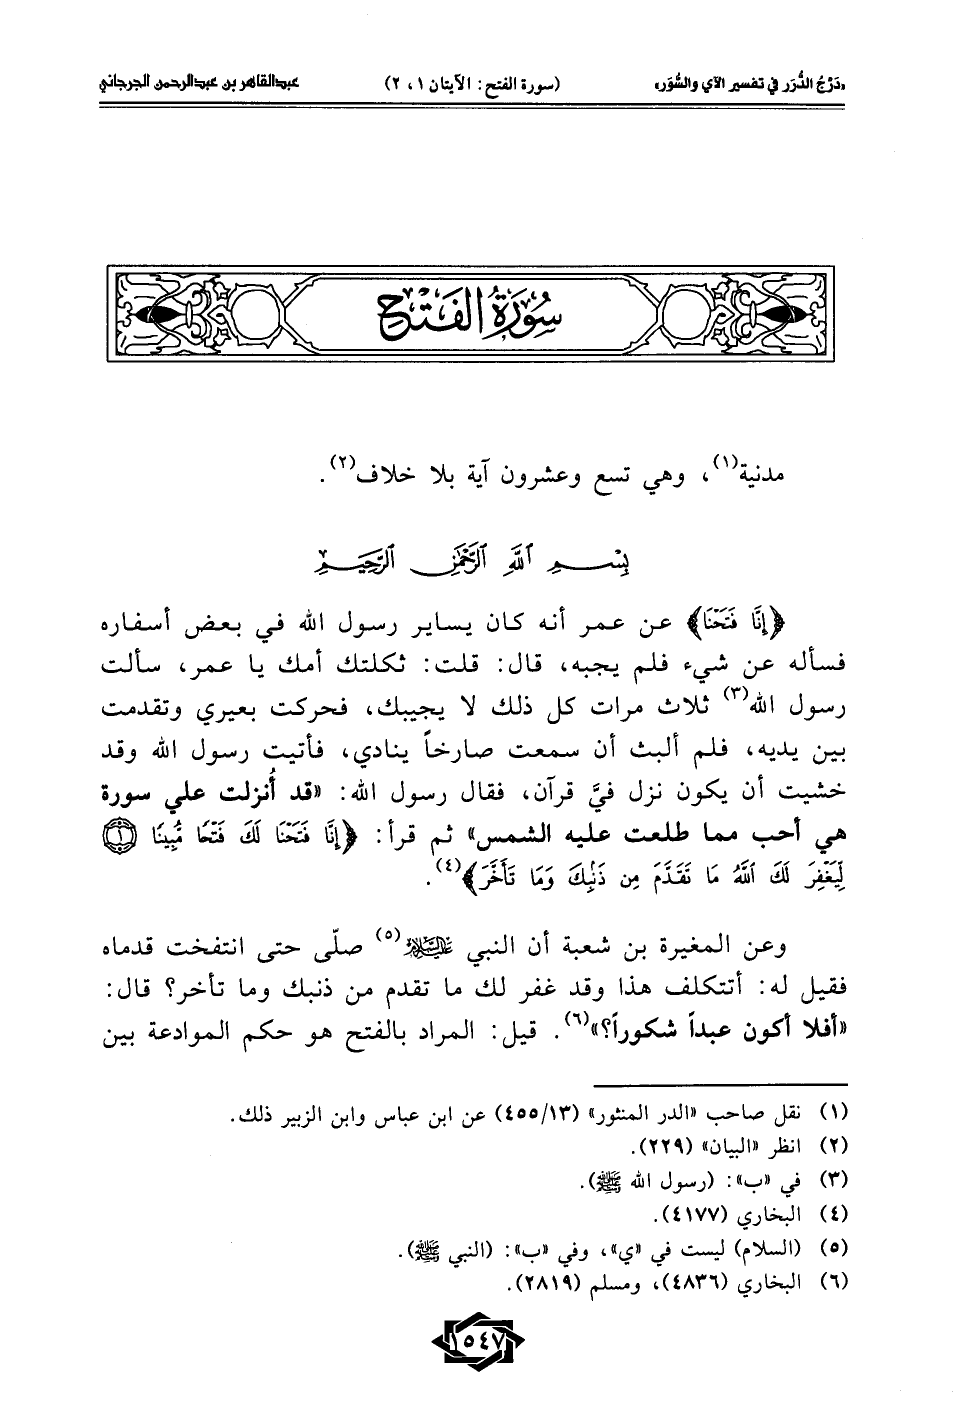 «دَرْجُ الدُّرَر في تفسير الآي والسُّوَر» (سورة الفتح: الآيتان ١، ٢) عبدالقاهر بن عبدالرحمن الجرجاني
سُورَةُ الفَتْح
مدنية(١)، وهي تسع وعشرون آية بلا خلاف(٢).
بِسْمِ اللَّهِ الرَّحْمَٰنِ الرَّحِيمِ
﴿إِنَّا فَتَحْنَا﴾ عن عمر أنه كان يساير رسول الله في بعض أسفاره
فسأله عن شيء فلم يجبه، قال: قلت: ثكلتك أمك يا عمر، سألت
رسول الله(٣) ثلاث مرات كل ذلك لا يجيبك، فحركت بعيري وتقدمت
بين يديه، فلم ألبث أن سمعت صارخاً ينادي، فأتيت رسول الله وقد
خشيت أن يكون نزل فيَّ قرآن، فقال رسول الله: «قد أُنزلت علي سورة
هي أحب مما طلعت عليه الشمس» ثم قرأ: ﴿إِنَّا فَتَحْنَا لَكَ فَتْحًا مُّبِينًا ۝١
لِّيَغْفِرَ لَكَ اللَّهُ مَا تَقَدَّمَ مِن ذَنبِكَ وَمَا تَأَخَّرَ﴾(٤).
وعن المغيرة بن شعبة أن النبي عليه السلام(٥) صلّى حتى انتفخت قدماه
فقيل له: أتتكلف هذا وقد غفر لك ما تقدم من ذنبك وما تأخر؟ قال:
«أفلا أكون عبداً شكوراً؟»(٦). قيل: المراد بالفتح هو حكم الموادعة بين
(١) نقل صاحب «الدر المنثور» (٤٥٥/١٣) عن ابن عباس وابن الزبير ذلك.
(٢) انظر «البيان» (٢٢٩).
(٣) في «ب»: (رسول الله ﷺ).
(٤) البخاري (٤١٧٧).
(٥) (السلام) ليست في «ي»، وفي «ب»: (النبي ﷺ).
(٦) البخاري (٤٨٣٦)، ومسلم (٢٨١٩).
١٥٤٧